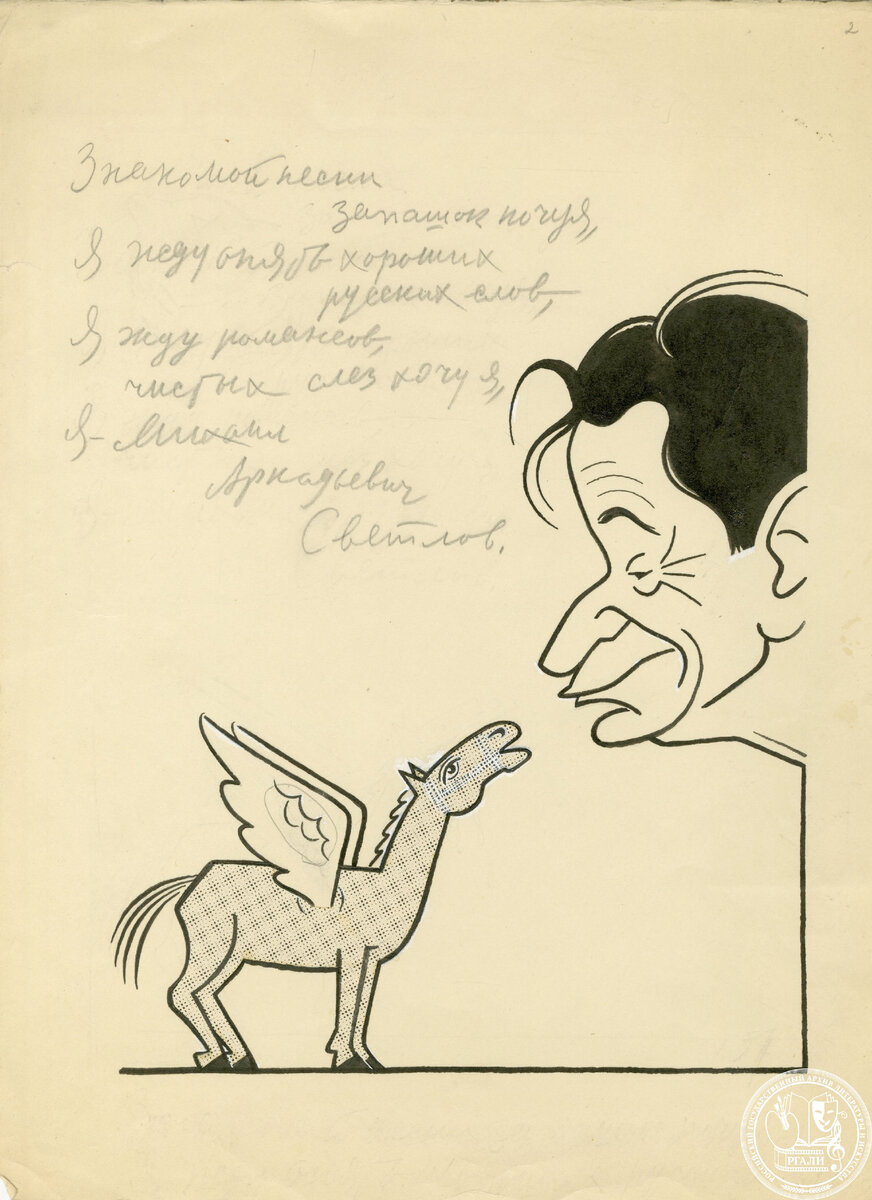 2
Знакомой песни
запашок почуя,
Я жду опять хороших
русских слов,
Я жду романсов,
чистых слез хочу я,
Я - Михаил
Аркадьевич
Светлов.
РОССИЙСКИЙ ГОСУДАРСТВЕННЫЙ АРХИВ ЛИТЕРАТУРЫ И ИСКУССТВА
РГАЛИ